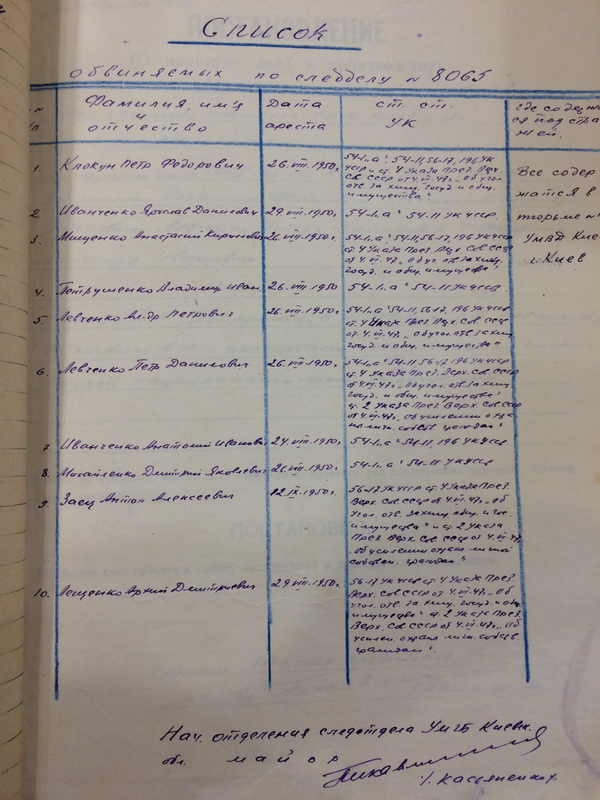 Список
обвиняемых по следделу № 8065
№ Фамилия, имя и отчество
Дата ареста
ст. ст. УК
где содержится под стражей.
1. Клокун Петр Федорович 26.VIII.1950г.
54-1 „а“ 54-11, 56-17, 196 УК
УССР и ст. 4 Указа През. Верх.
Сов. СССР от 4.VI.47г. „Об угол.
отв. за хищ. госуд. и общ.
имущества“
Все содер
жатся в
тюрьме №
УМВД Кие
г. Киев
2. Иванченко Ярослав Данилович 29.VIII.1950г. 54-1 „а“ 54-11 УК УССР.
3. Мищенко Анастасий 26.VIII.1950г.
54-1 „а“ 54-11, 56-17, 196 УК УССР
ст. 4 Указа През. Верх. Сов. СССР
от 4.VI.47г. „Об уг. отв. за хищ.
госуд. и общ. имущества“
4. Петрушенко Владимир Иван. 26.VIII.1950 54-1 „а“ 54-11 УК УССР.
5. Левченко Ал-др Петрович 26.VIII.1950г.
54-1 „а“ 54-11, 56-17, 196 УК УССР
ст. 4 Указа През. Верх. Сов. СССР
от 4.VI.47г. „Об угол. отв. за хищ.
госуд. и общ. имущества“
6. Левченко Петр Данилович 26.VIII.1950г.
54-1 „а“ 54-11, 56-17, 196 УК УССР
ст. 4 Указа През. Верх. Сов. СССР
от 4.VI.47г. „Об угол. отв. за хищ.
госуд. и общ. имущества“
ст. 2 Указа През. Верх. Сов. СССР
от 4.VI.47г. „Об усилении охра
ны личн. собств. граждан“
7. Иванченко Анатолий Иванов. 24.VIII.1950г. 54-1 „а“ 54-11 УК УССР
8. Михайленко Дмитрий Яковлевич 26.VIII.1950г. 54-1 „а“ 54-11 УК УССР
9. Заец Антон Алексеевич 12.IX.1950г.
56-17 УК УССР ст. 4 Указа През.
Верх. Сов. СССР от 4.VI.47г. „Об
угол. отв. за хищ. общ. и гос.
имущества“ и ст. 2 Указа
През. Верх. Сов. СССР от 4.VI.47г.
Об усилении охран личной
собствен. граждан“
10. Лещенко Дмитриевич 29.VIII.1950г.
56-17 УК УССР ст. 4 Указа През.
Верх. Сов. СССР от 4.VI.47г. „Об
угол. отв. за хищ. госуд. и общ.
имущества“ ст. 2 Указа През.
Верх. Сов. СССР от 4.VI.47г. „Об
усилен. охран личн. собств
граждан“
Нач. отделения следотдела УМГБ Киевск.
обл. майор
/. Касьяненко/